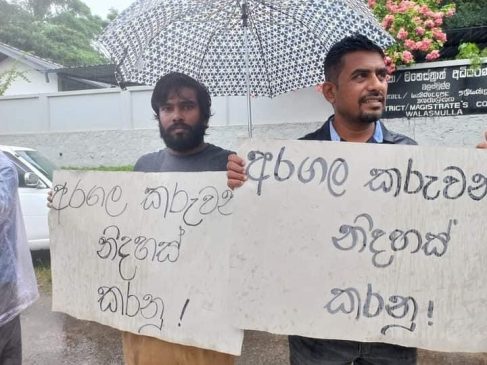 අරගල කරුවන්
නිදහස්
කරනු !
අරගල කරුවන්
නිදහස්
කරනු !
DISTRICT/MAGISTRATE'S CO
WALASMULLA